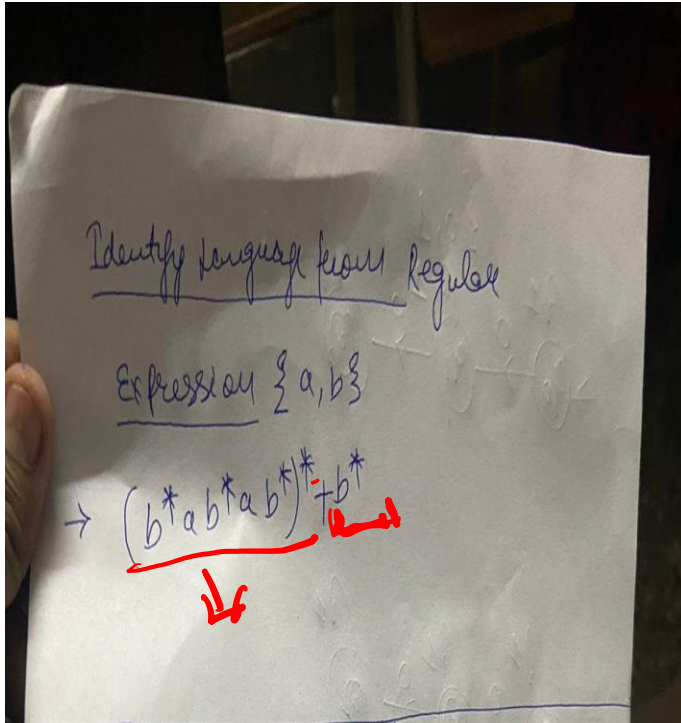 Identify Language from Regular
Expression { a, b}
→ (b*ab*ab*)*+b*